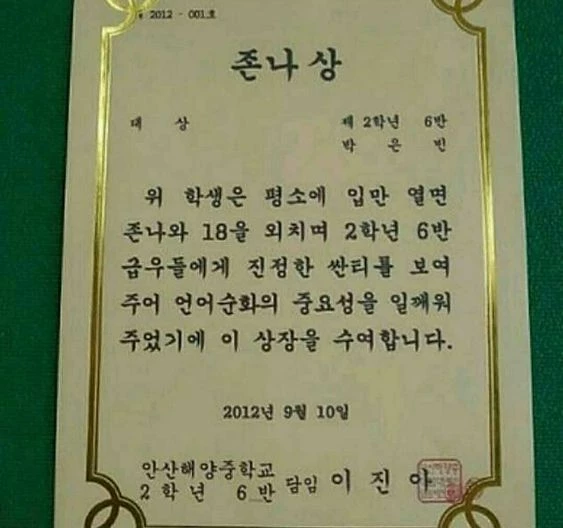 2012 - 001호
존나상
대 상
제 2학년 6반
박 은 빈
위 학생은 평소에 입만 열면
존나와 18을 외치며 2학년 6반
급우들에게 진정한 싼티를 보여
주어 언어순화의 중요성을 일깨워
주었기에 이 상장을 수여합니다.
2012년 9월 10일
안산해양중학교
2학년 6반 담임 이 진 아